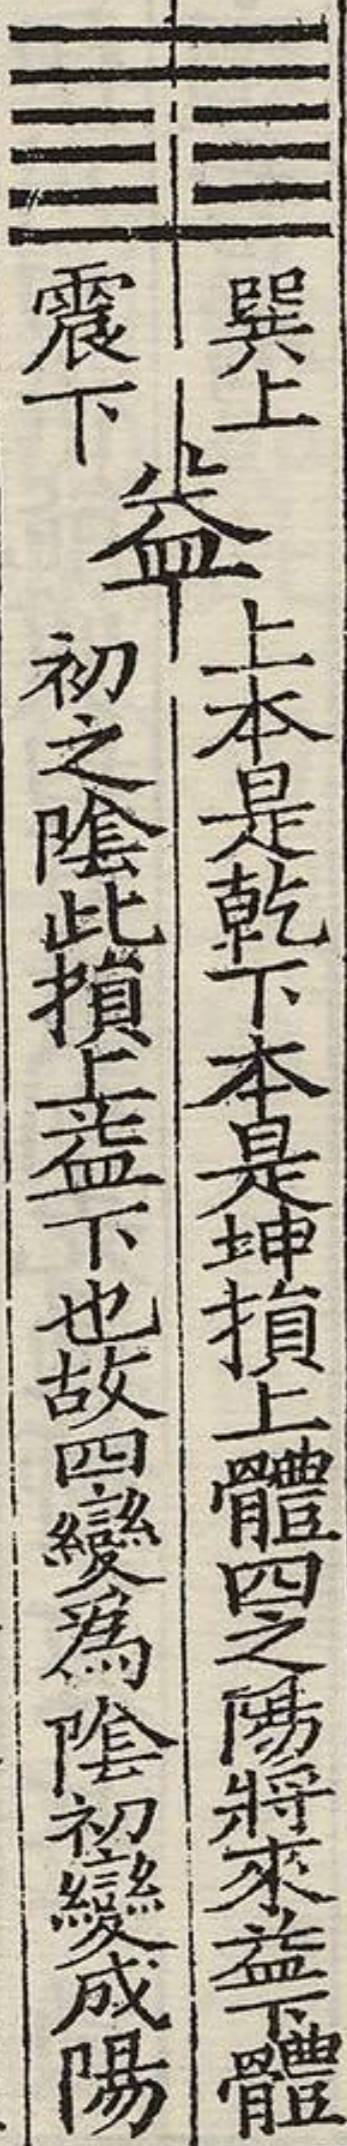 巽上
震下
益
上本是乾下本是坤損上體四之陽將來益下體
初之陰此損上益下也故四變爲陰初變成陽